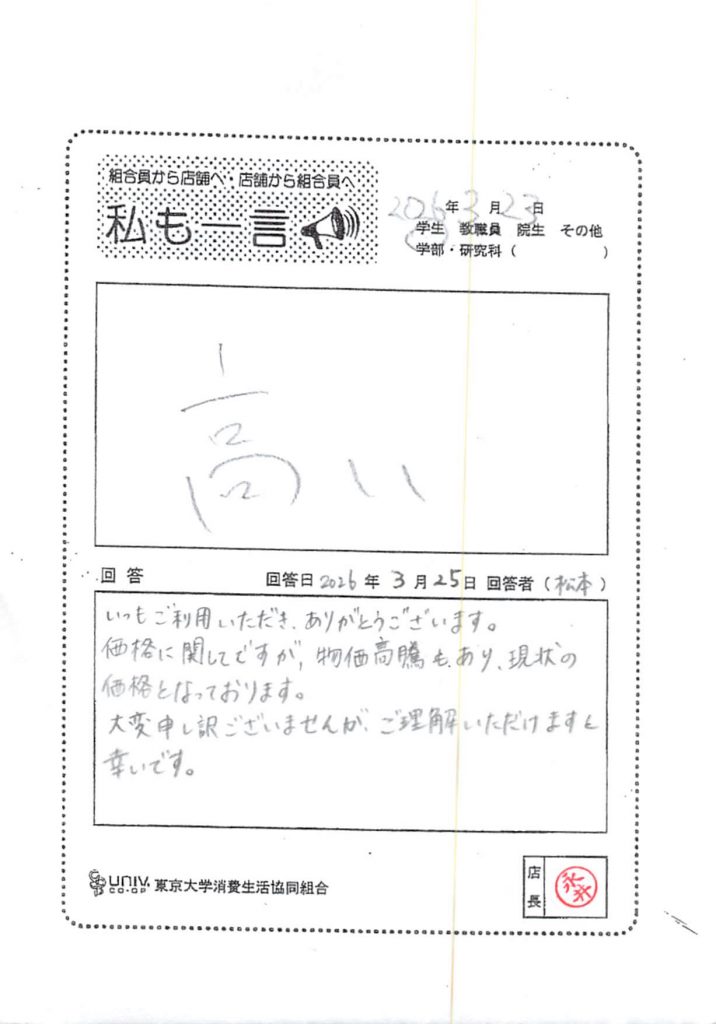 組合員から店舗へ・店舗から組合員へ
私も一言
2026年3月23日
学生 教職員 院生 その他
学部・研究科( )
高い
回答 回答日2026年3月25日 回答者(松本)
いつもご利用いただき、ありがとうございます。
価格に関してですが、物価高騰もあり、現状の
価格となっております。
大変申し訳ございませんが、ご理解いただけますと
幸いです。
UNIV. CO-OP 東京大学消費生活協同組合
店長
永井